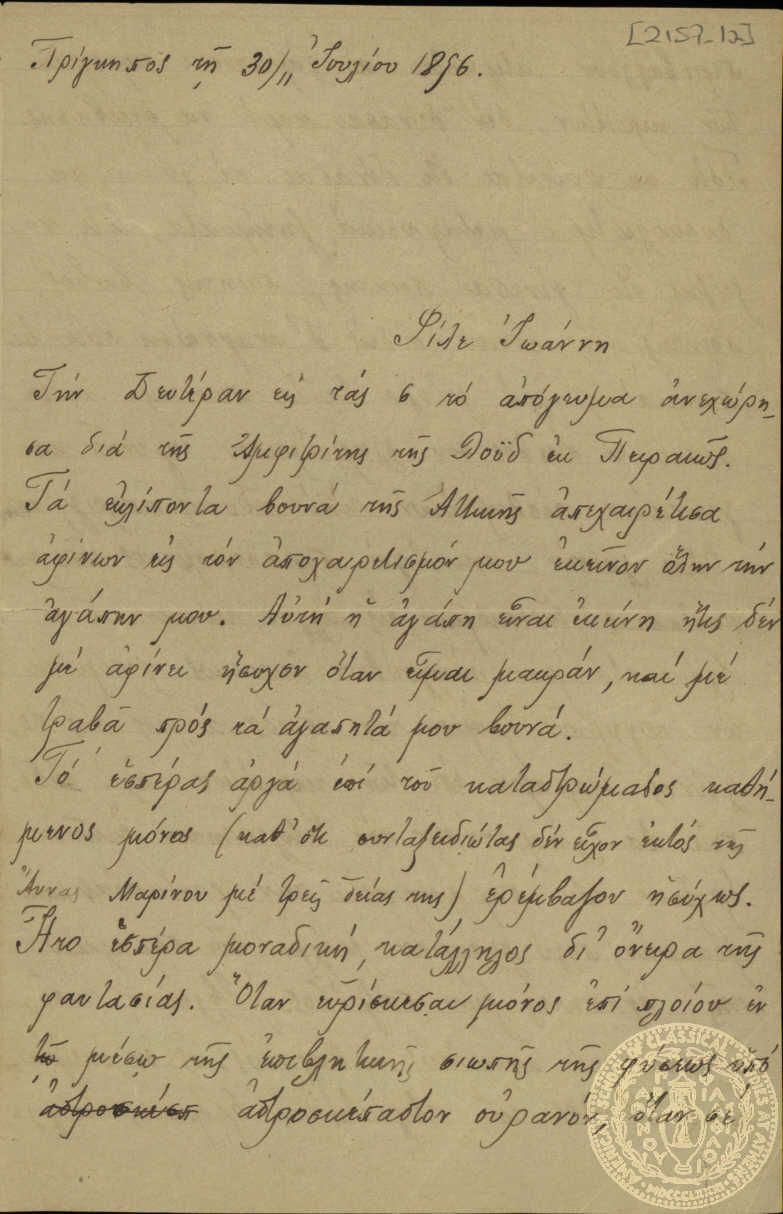 [2157-1α]
Πρίγκηπος τῇ 30/11 Ἰουλίου 1896.
Φίλε Ἰωάννη
Τήν Δευτέραν εἰς τάς 6 τό ἀπόγευμα ἀνεχώρη-
σα διά τῆς Ἀμφιτρίτης τῆς Λόϋδ ἐκ Πειραιῶς.
Τά ἐκλίποντα βουνά τῆς Ἀττικῆς ἀπεχαιρέτισα
ἀφίνων εἰς τόν ἀποχαιρετισμόν μου ἐκεῖνον ὅλην τήν
ἀγάπην μου. Αὐτή ἡ ἀγάπη εἶναι ἐκείνη ἥτις δέν
μέ ἀφίνει ἥσυχον ὅταν εἶμαι μακράν, καί μέ
τραβᾶ πρός τά ἀγαπητά μου βουνά.
Τό ἑσπέρας ἀργά ἐπί τοῦ καταστρώματος καθή-
μενος μόνος (καθ' ὅτι συνταξειδιώτας δέν εἶχον ἐκτός τῆς
Ἄννας Μαρίνου μέ τρεῖς θείας της) ἐρέμβαζον ἡσύχως.
Ἦτο ἑσπέρα μοναδική, κατάλληλος δι' ὄνειρα τῆς
φαντασίας. Ὅταν εὑρίσκεσαι μόνος ἐπί πλοίου ἐν
τῷ μέσῳ τῆς ἐπιβλητικῆς σιωπῆς τῆς φύσεως ὑπό
ἀστροσκέπ ἀστροσκέπαστον οὐρανόν, ὅταν σέ